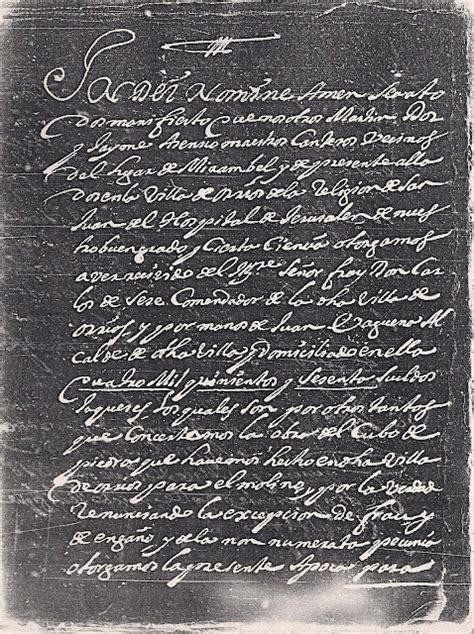 In Dei Nomine Amen Sea a todos manifiesto Que nosotros Martin
y Jayme maestros Canteros Vecinos
del lugar de Mirambel y de presente alla
dos en la Villa de orrios de la religion de San
Juan del Hospital de Jerusalen de nues
tro buen grado y Cierta Ciencia otorgamos
aver recivido del Señor fray Don Car
los de Comendador de la dha villa de
orrios y por manos de Juan Al
calde de dha villa y Domiciliado en ella
Cuatro Mil quinientos y Sesenta sueldos
Jaqueses los quales son por otros tantos
que Concertamos la obra del Cubo de
piedra que havemos hecho en dha villa
de orrios para el molino, y por la verdad
renunciando la excepcion de frau y
de engaño y de la non numerata pecunia
otorgamos la presente Apoca para